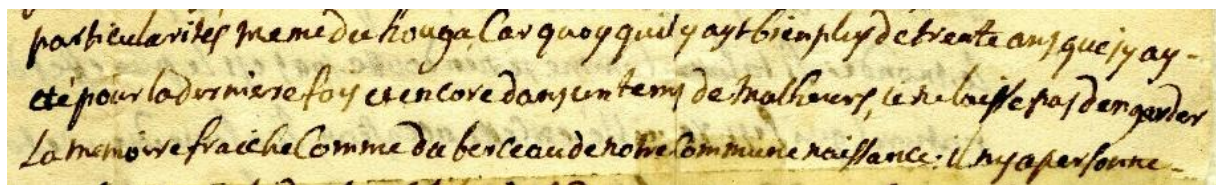 particularités meme du houga, Car quoy quil y ayt bien plus de trente ans que jy ay -
eté pour la derniere fois et encore dans un tems de malheurs, je ne laisse pas den garder
La memoire fraiche Comme du berceau de notre Commune naissance. il ny a personne -